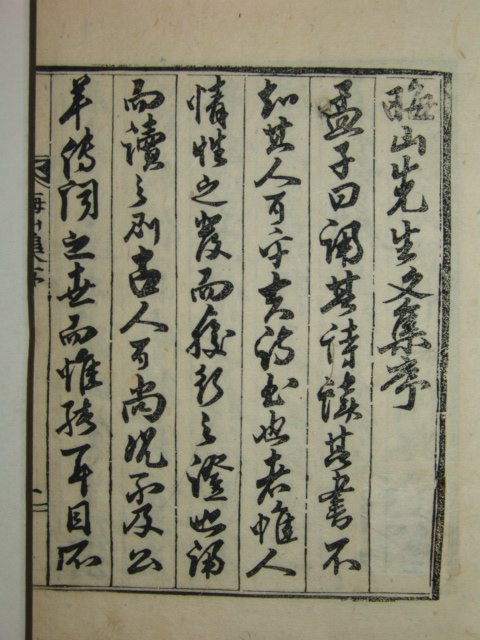 晦山先生文集序
孟子曰誦其詩讀其書不
知其人可乎夫詩書也者惟人
情性之發而之證也誦
而讀之則古人可尚況不及公
羊傳聞之世而惟耳目不
晦山集序